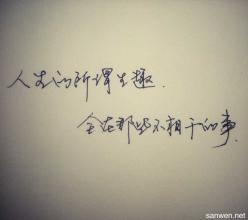 人生的所谓生趣.
全在那些不相干的事.
sanwen.net